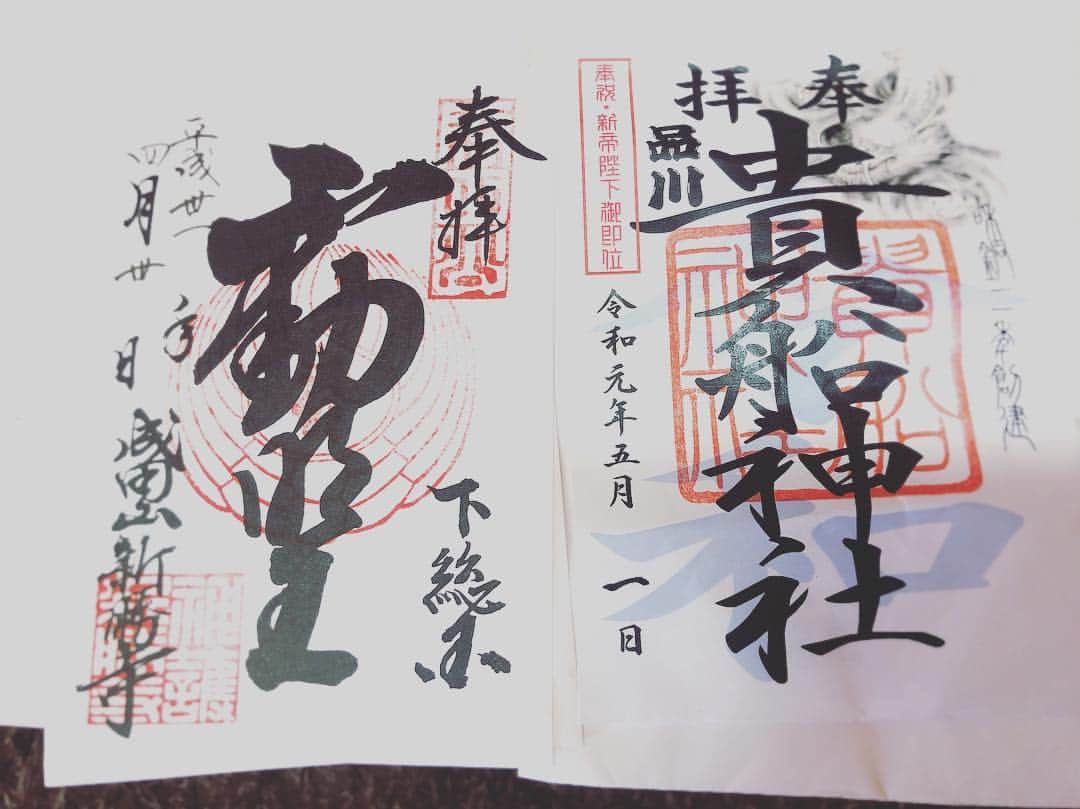 奉拝
和銅二年創建
品川
貴船神社
奉祝・新帝陛下御即位
令和元年五月一日
奉拝
下総国
不動明王
平成卅一年
四月卅日
成田山新勝寺